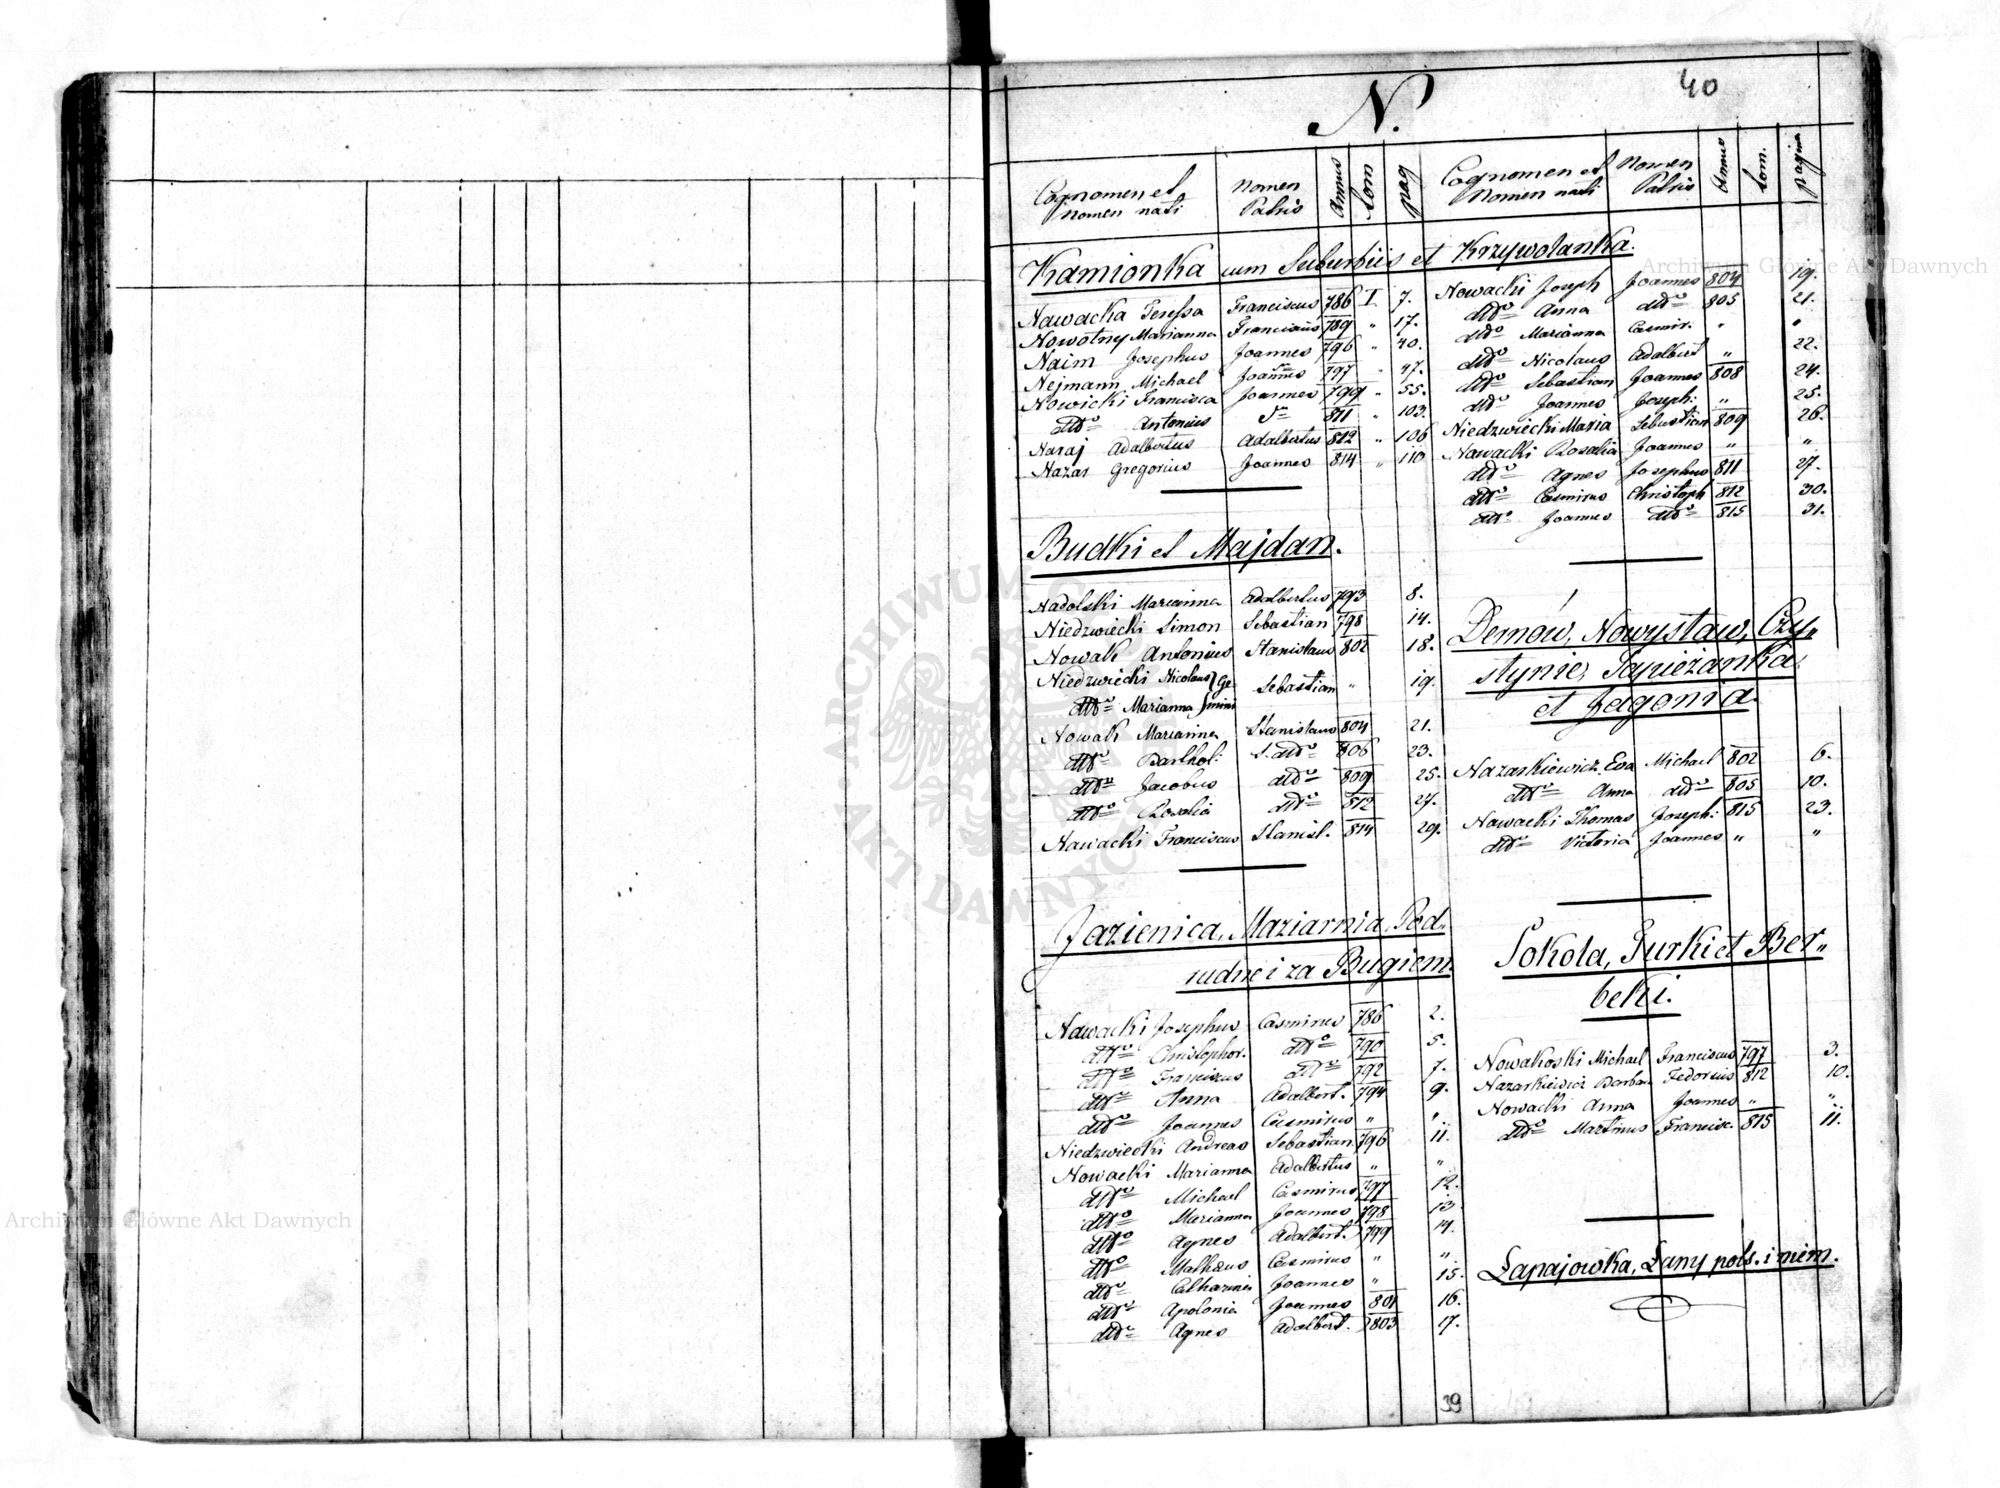 40
N.
Cognomen et Nomen nati
Nomen Patris
Annus
tom
pag
Cognomen et Nomen nati
Nomen Patris
Annus
tom.
pagina
Kamionka cum Suburbiis et Krzywolanka.
Nawacka Teressa Franciscus 786 I. 7.
Nowotny Marianna Franciscus 789 " 17.
Naim Josephus Joannes 796 " 40.
Nejmann Michael Joannes 797 " 47.
Nowicki Francisca Joannes 799 " 55.
dtto Antonius 811 " 103.
Naraj Adalbertus Adalbertus 812 " 106
Nazar Gregorius Joannes 814 " 110
Budki et Majdan.
Nadolski Marianna Adalbertus 793 8.
Niedzwiecki Simon Sebastian 798 14.
Nowak Antonius Stanislaus 802 18.
Niedzwiecki Nicolaus } Ge Sebastian " 19.
dtto Marianna } mini
Nowak Marianna Stanislaus 804 21.
dtto Barthol: S. dtto 806 23.
dtto Jacobus dtto 809 25.
dtto Rosalia dtto 812 27.
Nawacki Franciscus Stanisl. 814 29.
Jazienica, Maziarnia, Pod„
rudne i za Bugiem.
Nawacki Josephus Casmirus 786 2.
dtto Christophor. dtto 790 5.
dtto Franciscus dtto 792 7.
dtto Anna Adalbert. 794 9.
dtto Joannes Casmirus " "
Niedzwiecki Andreas Sebastian 796 11.
Nowacki Marianna Adalbertus " "
dtto Michael Casmirus 797 12.
dtto Marianna Joannes 798 13
dtto Agnes Adalbert. 799 14.
dtto Mathæus Casmirus " "
dtto Catharina Joannes " 15.
dtto Apolonia Joannes 801 16.
dtto Agnes Adalbert. 803 17.
Nowacki Joseph Joannes 804 19.
dtto Anna dtto 805 21.
dtto Marianna Casmir. " "
dtto Nicolaus Adalbert " 22.
dtto Sebastian Joannes 808 24.
dtto Joannes Joseph: " 25.
Niedzwiecki Maria Sebastian 809 26.
Nawacki Rosalia Joannes " "
dtto Agnes Josephus 811 27.
dtto Casmirus Christoph 812 30.
dtto Joannes dtto 815 31.
Dernów, Nowystaw, Czy„
stynie, Sapieżanka,
et Jagonia.
Nazarkiewicz Eva Michael 802 6.
dtto Anna dtto 805 10.
Nawacki Thomas Joseph: 815 23.
dtto Victoria Joannes " "
Sokola, Turki et Ber„
beki.
Nowakoski Michael Franciscus 797 3.
Nazarkiewicz Barbar Fedorius 812 10.
Nowacki Anna Joannes " "
dtto Martinus Francisc. 815 11.
Łapajowka, Łany pols. i niem.
39
Archiwum Główne Akt Dawnych
Archiwum Główne Akt Dawnych
ARCHIWUM GŁÓWNE AKT DAWNYCH